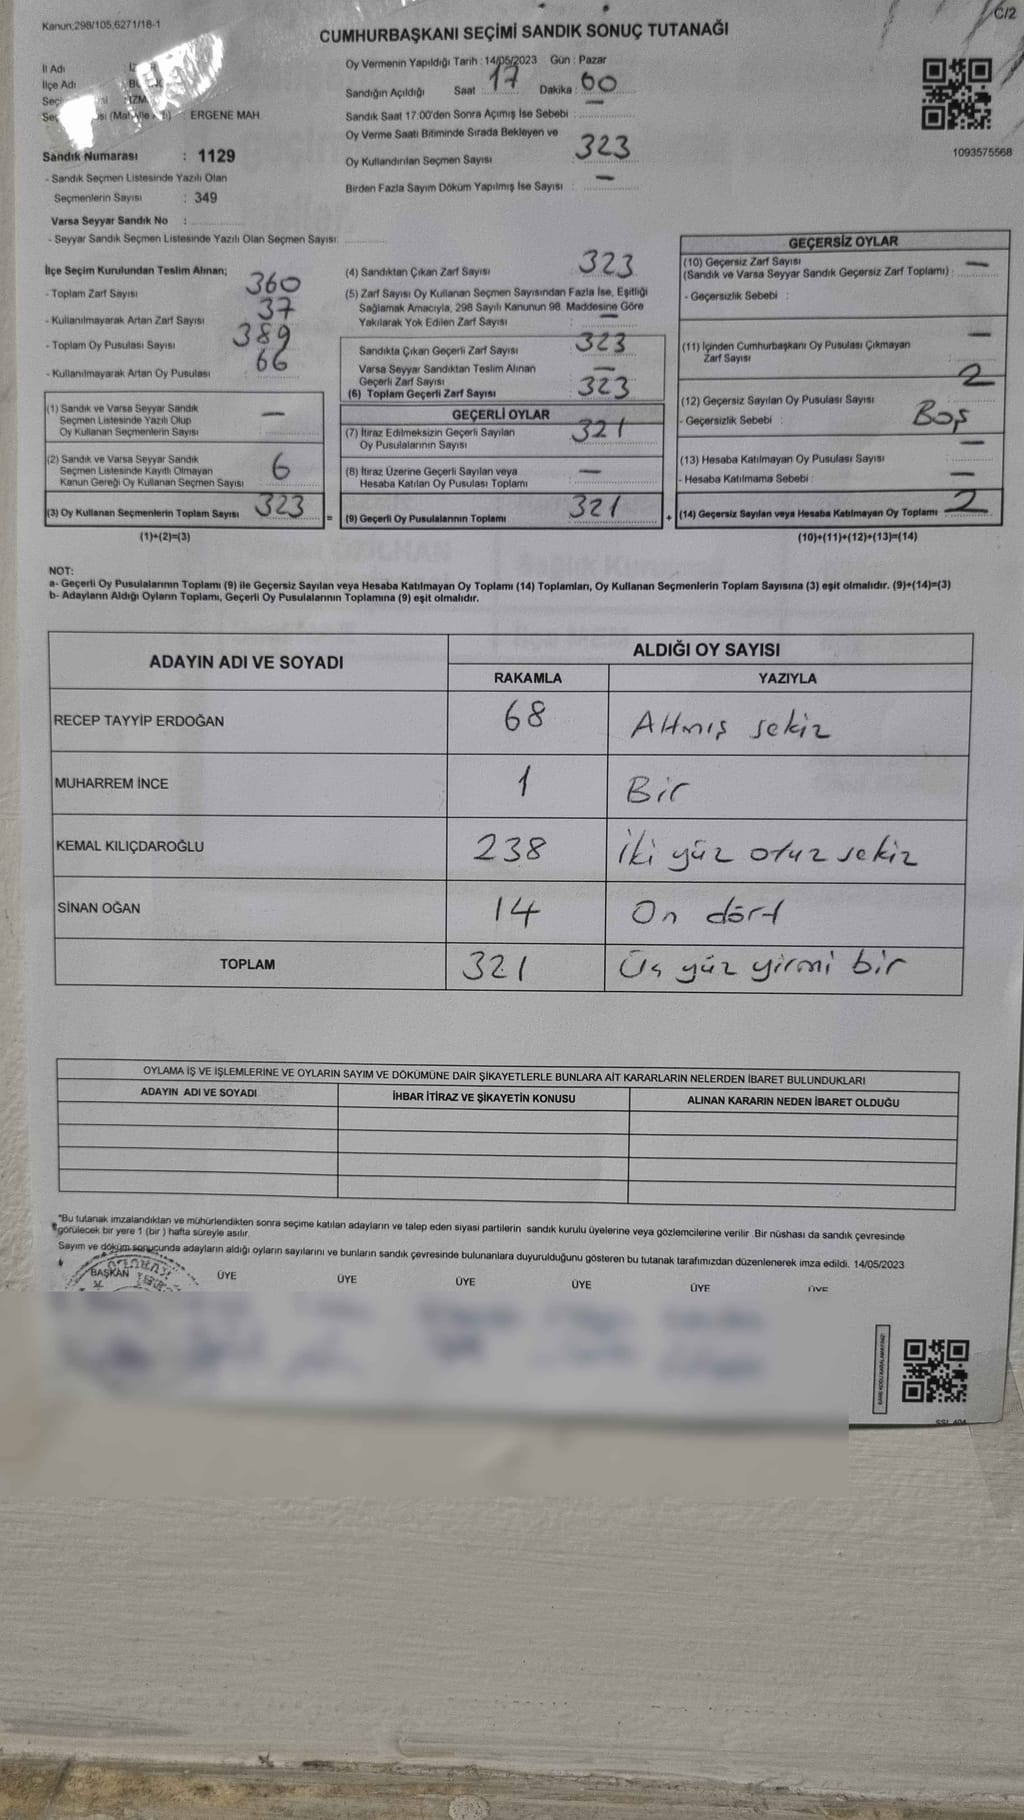 Kanun;298/105,6271/18-1
C/2
CUMHURBAŞKANI SEÇİMİ SANDIK SONUÇ TUTANAĞI
İl Adı
İlçe Adı
ERGENE MAH.
Sandık Numarası : 1129
- Sandık Seçmen Listesinde Yazılı Olan
Seçmenlerin Sayısı : 349
Varsa Seyyar Sandık No :
- Seyyar Sandık Seçmen Listesinde Yazılı Olan Seçmen Sayısı:
Oy Vermenin Yapıldığı Tarih : 14/05/2023 Gün : Pazar
Sandığın Açıldığı Saat : 17 Dakika : 00
Sandık Saat 17:00'den Sonra Açımış İse Sebebi : —
Oy Verme Saati Bitiminde Sırada Bekleyen ve
Oy Kullandırılan Seçmen Sayısı : 323
Birden Fazla Sayım Döküm Yapılmış İse Sayısı : —
1093575568
İlçe Seçim Kurulundan Teslim Alınan;
- Toplam Zarf Sayısı 360
- Kullanılmayarak Artan Zarf Sayısı 37
- Toplam Oy Pusulası Sayısı 389
- Kullanılmayarak Artan Oy Pusulası 66
(1) Sandık ve Varsa Seyyar Sandık
Seçmen Listesinde Yazılı Olup
Oy Kullanan Seçmenlerin Sayısı —
(2) Sandık ve Varsa Seyyar Sandık
Seçmen Listesinde Kayıtlı Olmayan
Kanun Gereği Oy Kullanan Seçmen Sayısı 6
(3) Oy Kullanan Seçmenlerin Toplam Sayısı 323 =
(1)+(2)=(3)
(4) Sandıktan Çıkan Zarf Sayısı 323
(5) Zarf Sayısı Oy Kullanan Seçmen Sayısından Fazla İse, Eşitliği
Sağlamak Amacıyla, 298 Sayılı Kanunun 98. Maddesine Göre
Yakılarak Yok Edilen Zarf Sayısı : —
Sandıkta Çıkan Geçerli Zarf Sayısı 323
Varsa Seyyar Sandıktan Teslim Alınan
Geçerli Zarf Sayısı —
(6) Toplam Geçerli Zarf Sayısı 323
GEÇERLİ OYLAR
(7) İtiraz Edilmeksizin Geçerli Sayılan
Oy Pusulalarının Sayısı 321
(8) İtiraz Üzerine Geçerli Sayılan veya
Hesaba Katılan Oy Pusulası Toplamı —
(9) Geçerli Oy Pusulalarının Toplamı 321 +
GEÇERSİZ OYLAR
(10) Geçersiz Zarf Sayısı —
(Sandık ve Varsa Seyyar Sandık Geçersiz Zarf Toplamı) :
- Geçersizlik Sebebi :
(11) İçinden Cumhurbaşkanı Oy Pusulası Çıkmayan
Zarf Sayısı —
(12) Geçersiz Sayılan Oy Pusulası Sayısı 2
- Geçersizlik Sebebi : Boş
(13) Hesaba Katılmayan Oy Pusulası Sayısı —
- Hesaba Katılmama Sebebi : —
(14) Geçersiz Sayılan veya Hesaba Katılmayan Oy Toplamı 2
(10)+(11)+(12)+(13)=(14)
NOT:
a- Geçerli Oy Pusulalarının Toplamı (9) ile Geçersiz Sayılan veya Hesaba Katılmayan Oy Toplamı (14) Toplamları, Oy Kullanan Seçmenlerin Toplam Sayısına (3) eşit olmalıdır. (9)+(14)=(3)
b- Adayların Aldığı Oyların Toplamı, Geçerli Oy Pusulalarının Toplamına (9) eşit olmalıdır.
ADAYIN ADI VE SOYADI
ALDIĞI OY SAYISI
RAKAMLA YAZIYLA
RECEP TAYYİP ERDOĞAN 68 Altmış sekiz
MUHARREM İNCE 1 Bir
KEMAL KILIÇDAROĞLU 238 İki yüz otuz sekiz
SİNAN OĞAN 14 On dört
TOPLAM 321 Üç yüz yirmi bir
OYLAMA İŞ VE İŞLEMLERİNE VE OYLARIN SAYIM VE DÖKÜMÜNE DAİR ŞİKAYETLERLE BUNLARA AİT KARARLARIN NELERDEN İBARET BULUNDUKLARI
ADAYIN ADI VE SOYADI İHBAR İTİRAZ VE ŞİKAYETİN KONUSU ALINAN KARARIN NEDEN İBARET OLDUĞU
"Bu tutanak imzalandıktan ve mühürlendikten sonra seçime katılan adayların ve talep eden siyasi partilerin sandık kurulu üyelerine veya gözlemcilerine verilir. Bir nüshası da sandık çevresinde
görülecek bir yere 1 (bir ) hafta süreyle asılır.
Sayım ve döküm sonucunda adayların aldığı oyların sayılarını ve bunların sandık çevresinde bulunanlara duyurulduğunu gösteren bu tutanak tarafımızdan düzenlenerek imza edildi. 14/05/2023
BAŞKAN ÜYE ÜYE ÜYE ÜYE ÜYE ÜYE